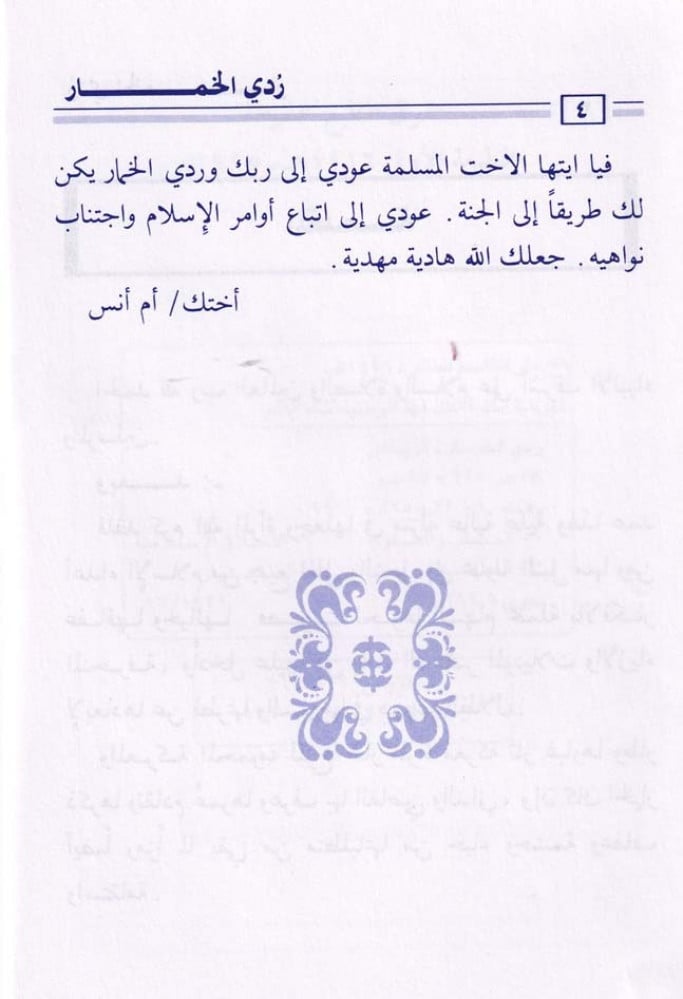 رُدي الخمـــــــــــار
٤
فيا ايتها الاخت المسلمة عودي إلى ربك وردي الخمار يكن
لك طريقاً إلى الجنة. عودي إلى اتباع أوامر الإسلام واجتناب
نواهيه. جعلك الله هادية مهدية.
أختك/ أم أنس